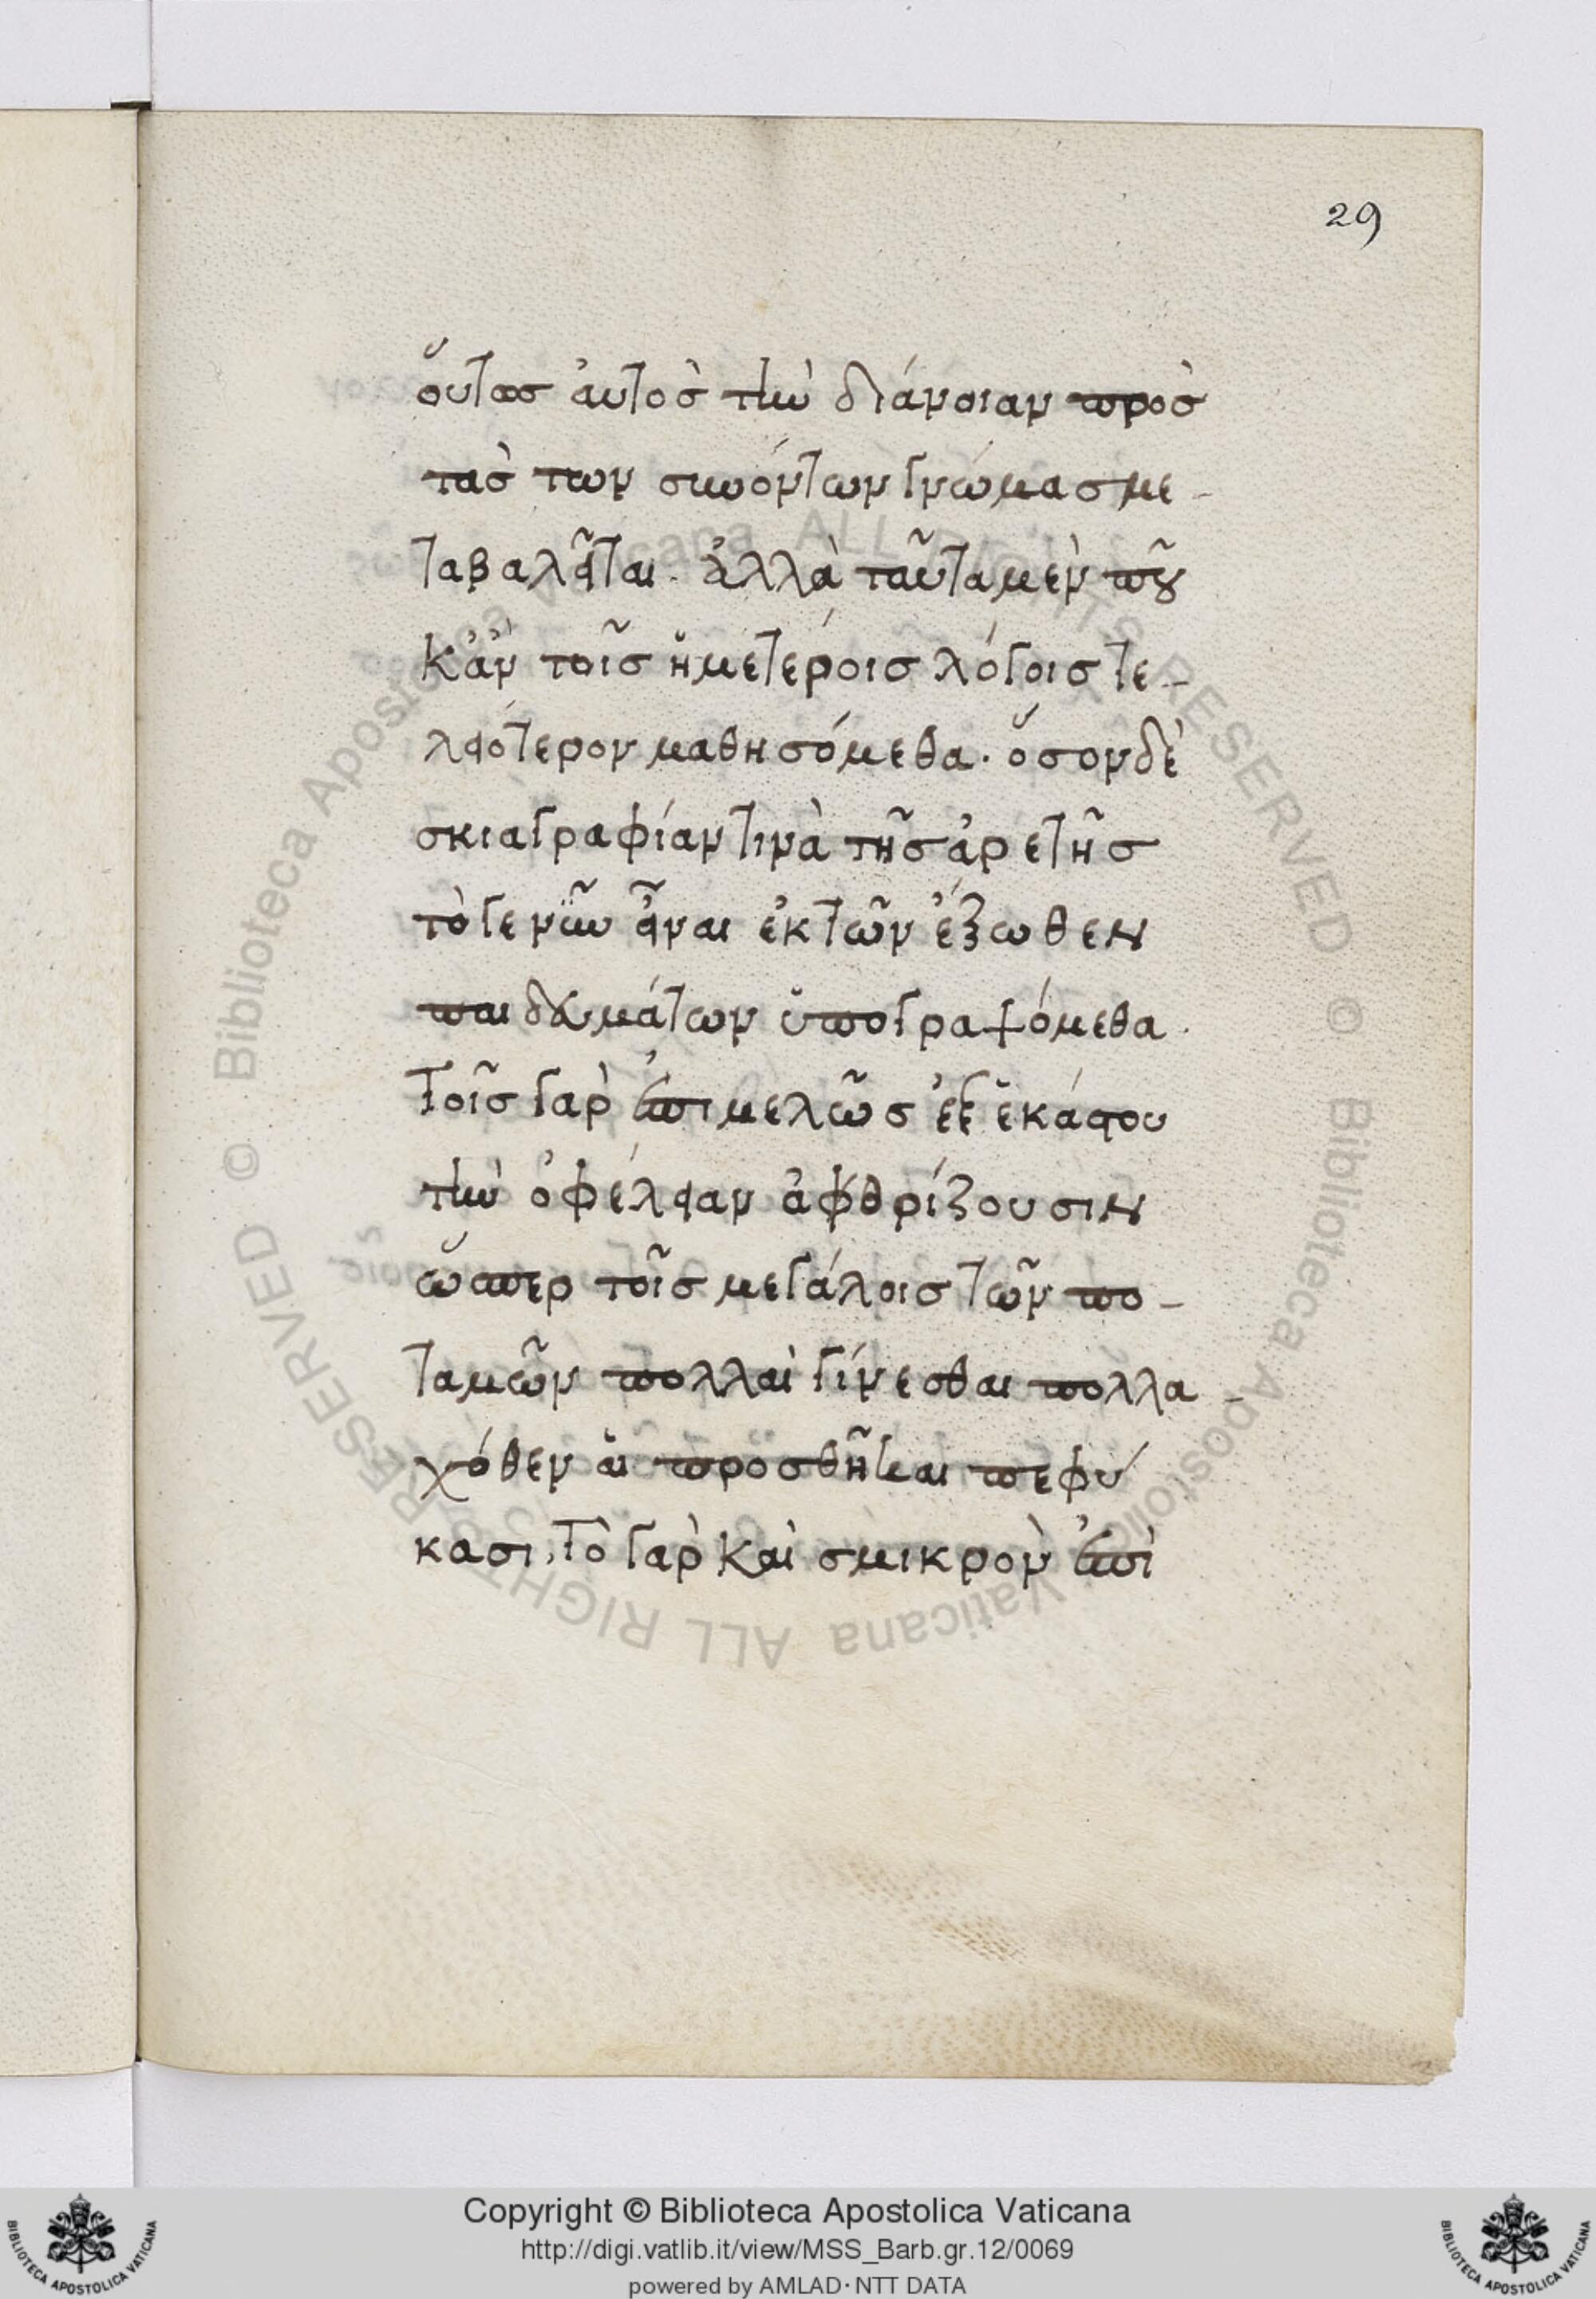 29
οὕτως ἀυτὸς τὴν διάνοιαν πρὸς
τὰς των συνόντων γνώμας με-
ταβαλεῖται. ἀλλὰ ταῦτα μὲν που
κἀν τοῖς ἡμετέροις λόγοις τε-
λειότερον μαθησόμεθα. ὅσον δὲ
σκιαγραφίαν τινὰ τῆς ἀρετῆς
τό γε νῦν εἶναι ἐκ τῶν ἔξωθεν
παιδευμάτων ὑπογραψόμεθα.
Τοῖς γὰρ ἐπιμελῶς ἐξ ἑκάστου
τὴν ὀφέλειαν ἀθρίζουσιν
ὥσπερ τοῖς μεγάλοις τῶν πο-
ταμῶν πολλαὶ γίνεσθαι πολλα-
χόθεν αἱ προσθῆκαι πεφύ
κασι, Τὸ γὰρ καὶ σμικρὸν ἐπὶ
Copyright © Biblioteca Apostolica Vaticana
http://digi.vatlib.it/view/MSS_Barb.gr.12/0069
powered by AMLAD·NTT DATA
BIBLIOTECA APOSTOLICA VATICANA
BIBLIOTECA APOSTOLICA VATICANA
© Biblioteca Apostolica Vaticana ALL RIGHTS RESERVED
© Biblioteca Apostolica Vaticana ALL RIGHTS RESERVED